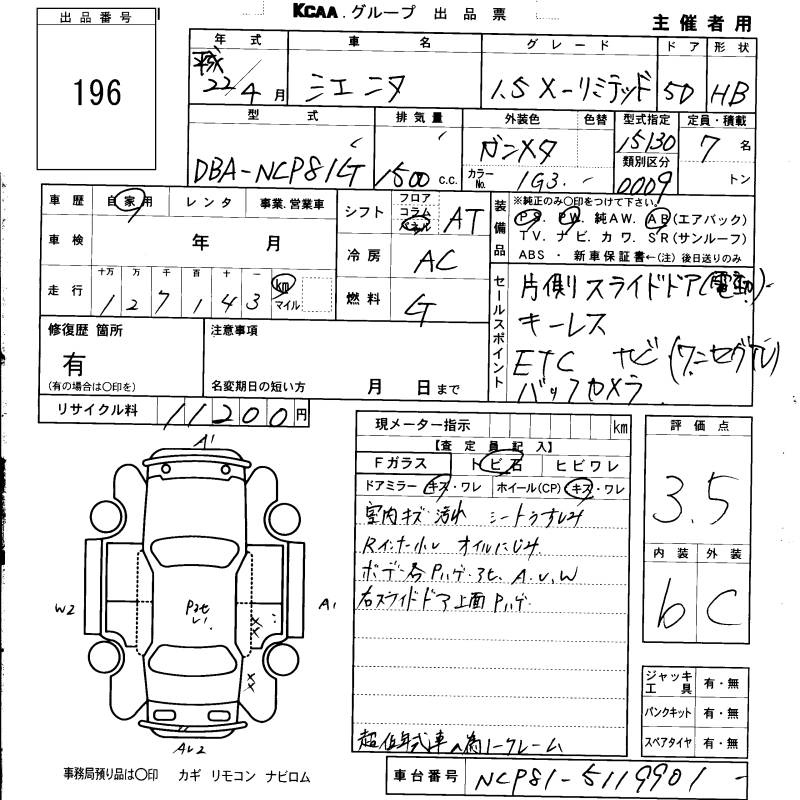 KCAA.グループ 出品票
主催者用
出品番号
196
年式 車名 グレード ドア 形状
平成22/4月 シエンタ 1.5 X-リミテッド 5D HB
型式 排気量 外装色 色替 型式指定 定員・積載
DBA-NCP81G 1500 c.c. ガンメタ 15130 7名
カラーNo. 1G3 類別区分 0009 トン
車歴 自家用 レンタ 事業.営業車
シフト フロア コラム パネル AT
装備品 ※純正のみ○印をつけて下さい。
PS. PW. 純AW. AB(エアバック)
TV. ナビ. カワ. SR(サンルーフ)
ABS ・ 新車保証書←(注)後日送りのみ
車検 年 月
冷房 AC
走行 十万 万 千 百 十 一 km マイル
127143
燃料 G
セールスポイント
片側スライドドア(電動)
キーレス
ETC ナビ(ワンセグTV)
バックカメラ
修復歴 箇所
有
(有の場合は○印を)
注意事項
名変期日の短い方 月 日まで
リサイクル料 11200円
現メーター指示 km
【査定員記入】
Fガラス トビ石 ヒビワレ
ドアミラー キズ・ワレ ホイール(CP) キズ・ワレ
室内キズ 汚れ シートうすしみ
Rインナー小レ オイルにじみ
ボデー各Pハゲ・アセ、A.U.W
右スライドドア上面Pハゲ
超低年式車の為ノークレーム
評価点
3.5
内装 外装
b C
ジャッキ工具 有・無
パンクキット 有・無
スペアタイヤ 有・無
A1
W2
A1
AU2
事務局預り品は○印 カギ リモコン ナビロム
車台番号 NCP81-5119901